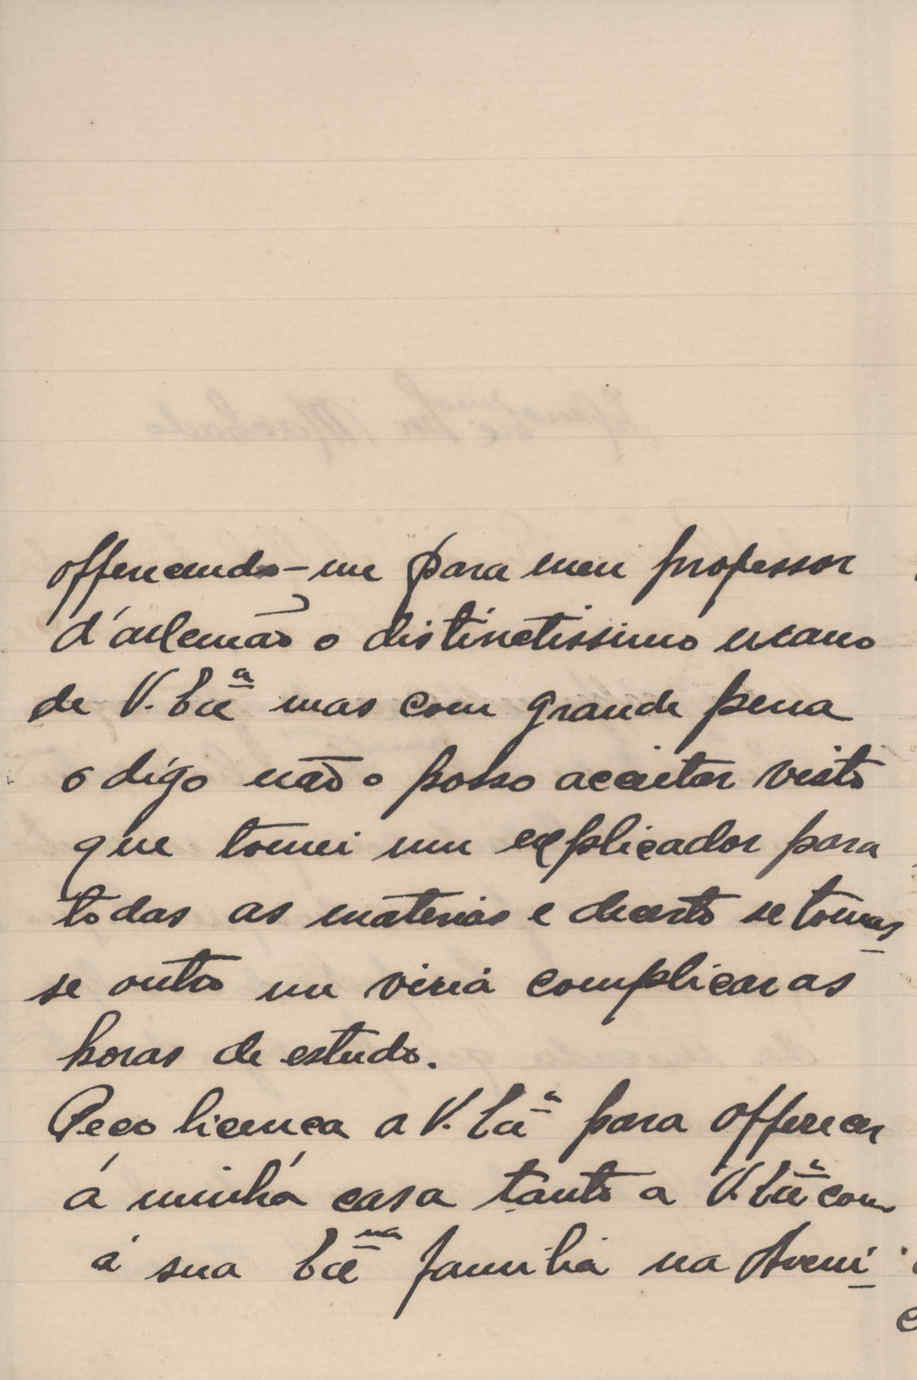 offerecendo-me para meu professor
d'allemão o distinctissimo mano
de V. Exᵃ mas com grande pena
o digo não o posso acceitar visto
que tomei um explicador para
todas as materias e decerto se tomas
se outro me viria complicar as
horas de estudo.
Peço licença a V. Exᵃ para offerecer
á minhá casa tanto a V. Exᵃ com
á sua Exᵐᵃ familia na Aveni